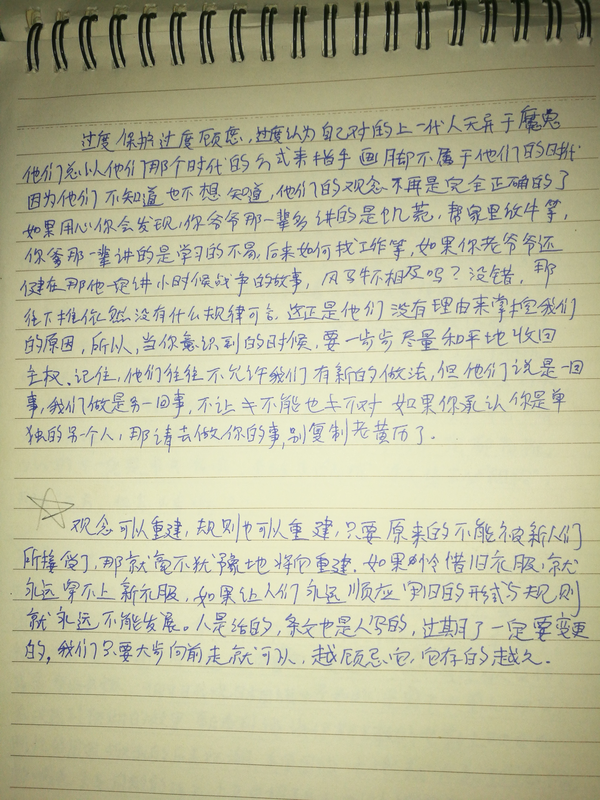 过度保护过度顾虑,过度认为自己对的上一代人无异于魔鬼
他们总以他们那个时代的方式来指手画脚不属于他们的时代
因为他们不知道也不想知道,他们的观念不再是完全正确的了
如果用心你会发现,你爷爷那一辈多讲的是饥荒,帮家里放牛等,
你爹那一辈讲的是学习的不易,后来如何找工作等,如果你老爷爷还
健在那他一定讲小时候战争的故事,风马牛不相及吗?没错,那
往下推依然没有什么规律可言,这正是他们没有理由来掌控我们
的原因,所以,当你意识到的时候,要一步步尽量和平地收回
主权、记住,他们往往不允许我们有新的做法,但他们说是一回
事,我们做是另一回事,不让≠不能也≠不对 如果你承认你是单
独的另一个人,那请去做你的事,别复制老黄历了.
观念可以重建,规则也可以重建,只要原来的不能被新人们
所接受了,那就毫不犹豫地将它重建.如果怜惜旧衣服,就
永远穿不上新衣服,如果让人们永远顺应旧的形式与规则
就永远不能发展。人是活的,条文也是人写的,过期了一定要变更
的,我们只要大步向前走就可以,越顾忌它,它存的越久.